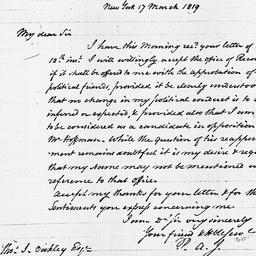 New York 17 March 1819
My dear Sir
I have this Morning rec? your letter of
15th inst. I will willingly accept the office of Reco
if it shall be offered to me with the approbation of
political friends, provided it be clearly understoo
that no change in my political conduct is to
inferred or expected, & provided also that I am
to be considered as a candidate in opposition
Mr Hoffman. While the question of his appoi
ment remains doubtful it is my desire & requ
that my Name may not be mentioned
reference to that office.
Accept my thanks for your letter & for the
Sentiments you express concerning me.
I am Dr Sir very sincerely
Your friend &
P. A. J.
Tho. J. Oakley Esqr.